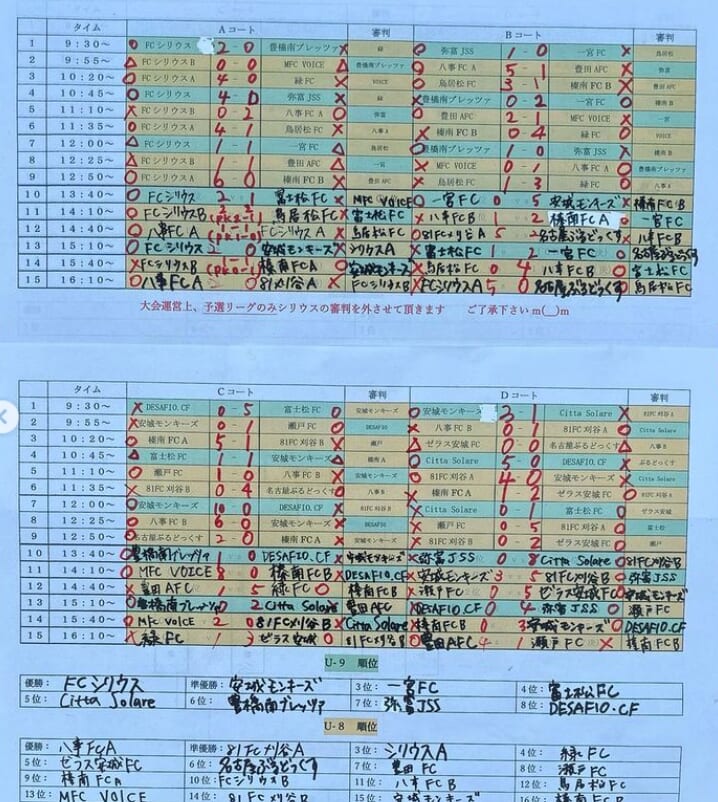 タイム Aコート 審判 Bコート 審判
1 9:30～ ○ FCシリウス 2-0 豊橋南プレッツァ × 緑 ○ 弥富JSS 1-0 一宮FC × 鳥居松
2 9:55～ △ FCシリウスB 0-0 MFC VOICE △ 豊橋南プレッツァ ○ 八事FC A 5-1 豊田AFC × 弥富
3 10:20～ ○ FCシリウスA 4-0 緑FC × VOICE ○ 鳥居松FC 3-1 榛南FC B × 豊田AFC
4 10:45～ ○ FCシリウス 4-0 弥富JSS × 緑 × 豊橋南プレッツァ 0-2 一宮FC ○ 榛南B
5 11:10～ × FCシリウスB 0-2 八事FC A ○ 弥富 ○ 豊田AFC 2-1 MFC VOICE × 一宮
6 11:35～ ○ FCシリウスA 4-1 鳥居松FC × 八事A × 榛南FC B 0-4 緑FC ○ VOICE
7 12:00～ △ FCシリウス 1-1 一宮FC △ 鳥居松 ○ 豊橋南プレッツァ 1-0 弥富JSS × 榛南B
8 12:25～ △ FCシリウスB 1-1 豊田AFC △ 一宮 × MFC VOICE 0-1 八事FC A ○ 豊橋南プレッツァ
9 12:50～ ○ FCシリウスA 6 0 榛南FC B × 豊田AFC × 鳥居松FC 1-3 緑FC ○ 八事A
10 13:40～ ○ FCシリウス 2 1 富士松FC × MFC VOICE × 一宮FC 0 5 安城モンキーズ ○ 榛南FC B
11 14:10～ ○ FCシリウスB 1-1 鳥居松FC × 富士松FC × 八事FCB 1 2 榛南FCA ○ 一宮FC
12 14:40～ ○ 八事FC A 1-1 FCシリウスA × 鳥居松FC ○ 81FC刈谷A 5 2 名古屋ぶるどっくす × 八事FCB
13 15:10～ ○ FCシリウス 2 0 安城モンキーズ × シリウスA × 富士松FC 1 2 一宮FC ○ 名古屋ぶるどっくす
14 15:40～ × FCシリウスB 榛南FCA ○ 安城モンキーズ × 鳥居松FC 0 4 八事FCB ○ 富士松FC
15 16:10～ ○ 八事FC A 1 0 81刈谷A × FCシリウスB ○ FCシリウスA 5 0 名古屋ぶるどっくす × 鳥居松FC
大会運営上、予選リーグのみシリウスの審判を外させて頂きます ご了承下さいm(__)m
タイム Cコート 審判 Dコート 審判
1 9:30～ × DESAFIO.CF 0-5 富士松FC ○ 安城モンキーズ ○ 安城モンキーズ 3-1 Citta Solare × 81FC刈谷A
2 9:55～ × 安城モンキーズ 0-1 瀬戸FC ○ DESAFIO × 八事FC B 0-1 81FC刈谷A ○ Citta Solare
3 10:20～ ○ 榛南FC A 5-1 81FC刈谷B × 瀬戸 △ ゼラス安城FC 0-0 名古屋ぶるどっくす △ 八事B
4 10:45～ △ 富士松FC 1-1 安城モンキーズ △ 榛南A ○ Citta Solare 5-0 DESAFIO.CF × ぶるどっくす
5 11:10～ ○ 瀬戸FC 1 0 八事FC B × 安城モンキーズ ○ 81FC刈谷A 4 0 安城モンキーズ × Citta Solare
6 11:35～ × 81FC刈谷B 0 4 名古屋ぶるどっくす ○ 八事B × 榛南FC A 1-2 ゼラス安城FC ○ 81FC刈谷A
7 12:00～ ○ 安城モンキーズ 10 0 DESAFIO.CF × 81FC刈谷B × Citta Solare 0-1 富士松FC ○ ゼラス安城
8 12:25～ ○ 八事FC B 6-0 安城モンキーズ × DESAFIO × 瀬戸FC 0 5 81FC刈谷A ○ 富士松
9 12:50～ ○ 名古屋ぶるどっくす 2-0 榛南FC A × 安城モンキーズ × 81FC刈谷B 0-2 ゼラス安城FC ○ 瀬戸
10 13:40～ ○ 豊橋南プレッツァ 1 0 DESAFIO.CF × 安城モンキーズ × 弥富JSS 0 8 Citta Solare ○ 81FC刈谷B
11 14:10～ ○ MFC VOICE 8 0 榛南FCB × DESAFIO.CF × 安城モンキーズ 3 5 81FC刈谷B ○ 弥富JSS
12 14:40～ × 豊田AFC 1 5 緑FC ○ 榛南FCB × 瀬戸FC 0 5 ゼラス安城FC ○ 安城モンキーズ
13 15:10～ 豊橋南プレッツァ 0 2 Citta Solare ○ 豊田AFC × DESAFIO.CF 0 4 弥富JSS ○ 瀬戸FC
14 15:40～ ○ MFC VOICE 2 0 81FC刈谷B × Citta Solare × 榛南FCB 0 3 安城モンキーズ ○ DESAFIO.CF
15 16:10～ × 緑FC 1 3 ゼラス安城 ○ 81FC刈谷B ○ 豊田AFC 4 1 瀬戸FC × 榛南FCB
U-9 順位
優勝： FCシリウス 準優勝： 安城モンキーズ 3位： 一宮FC 4位： 富士松FC
5位： Citta Solare 6位： 豊橋南プレッツァ 7位： 弥富JSS 8位： DESAFIO.CF
U-8 順位
優勝： 八事FCA 準優勝： 81FC刈谷A 3位： シリウスA 4位： 緑FC
5位： ゼラス安城FC 6位： 名古屋ぶるどっくす 7位： 豊田FC 8位： 瀬戸FC
9位： 榛南FCA 10位： FCシリウスB 11位： 八事FCB 12位： 鳥居松FC
13位： MFC VOICE 14位： 81FC刈谷B 15位： 安城モンキーズ 16位： 榛南FCB